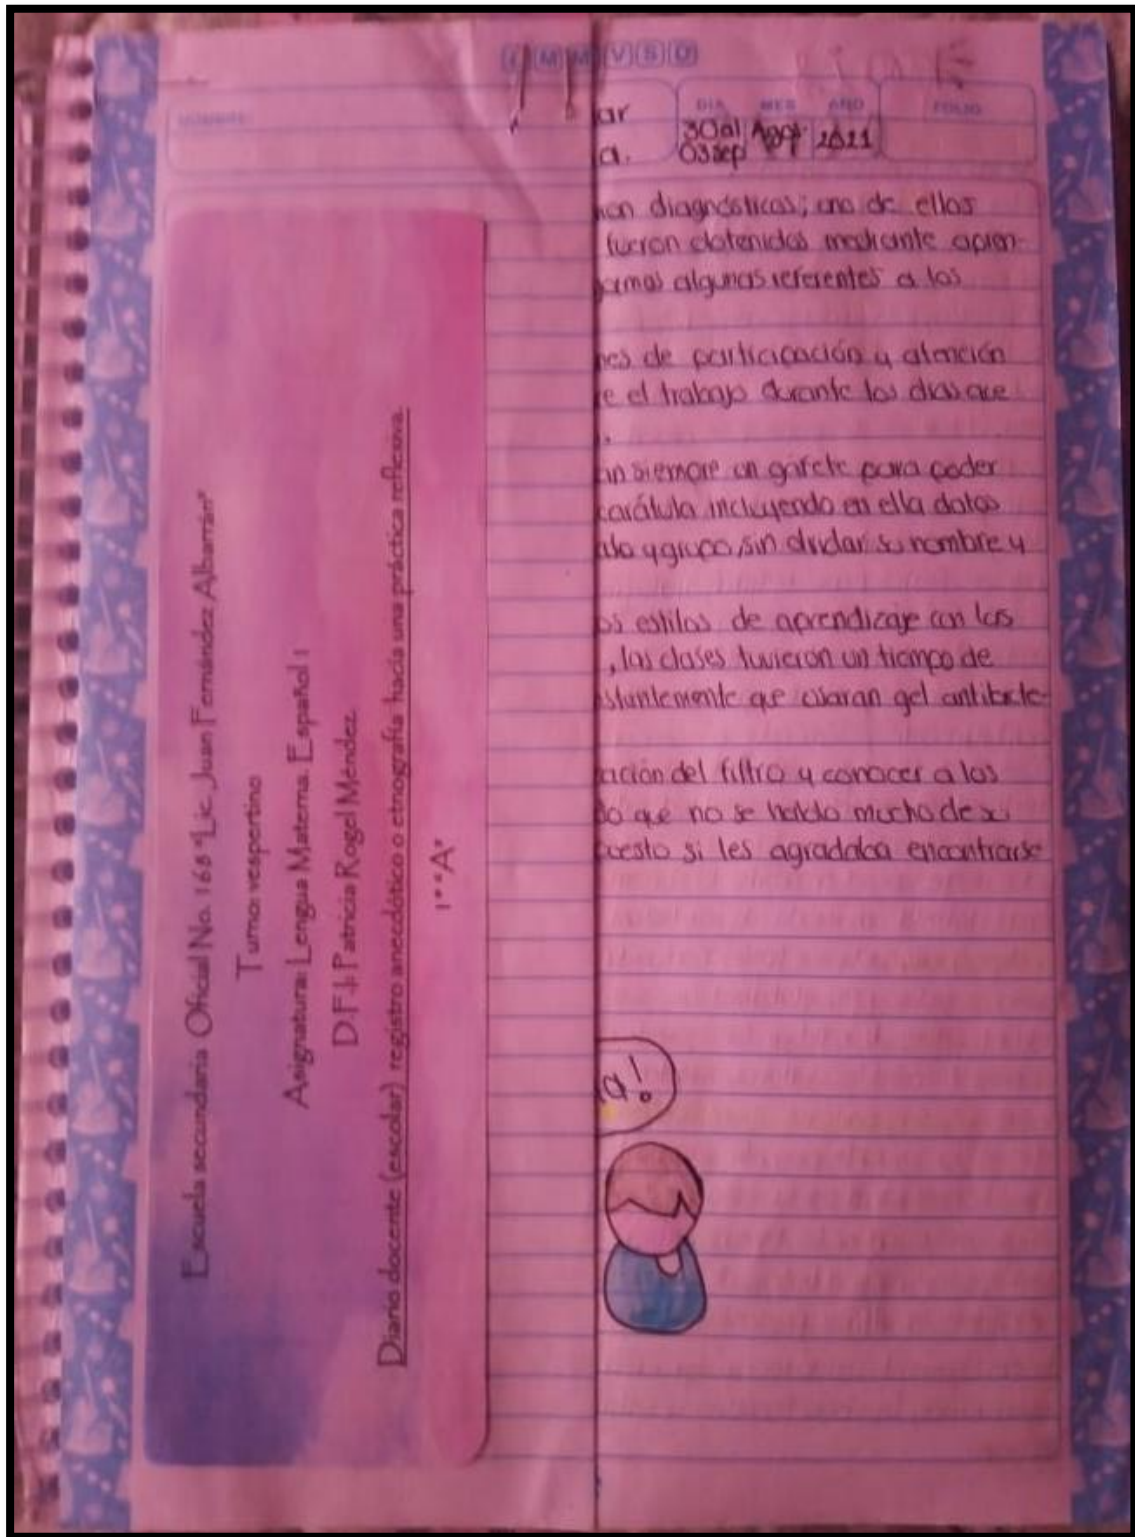 L M M V S D
NOMBRE:
ar
a.
DIA MES AÑO
FOLIO
30al
03sep Agos- 2021
Escuela secundaria Oficial No. 168 "Lic. Juan Fernández Albarrán"
Turno: vespertino
Asignatura: Lengua Materna. Español 1
D.F.J: Patricia Rogel Mendez
Diario docente (escolar) registro anecdótico o etnografía hacia una práctica reflexiva.
1°"A"
ron diagnósticos; uno de ellos
fueron obtenidos mediante
algunas referentes a los
nes de participación y atención
e el trabajo durante los dias que
.
an siempre un gafete para poder
carátula incluyendo en ella datos
ado y grupo, sin olvidar su nombre y
os estilos de aprendizaje con los
, las clases tuvieron un tiempo de
stantemente que usaran gel antibacte-
ación del filtro y conocer a los
do que no se habló mucho de
uesto si les agradaba encontrarse
a!